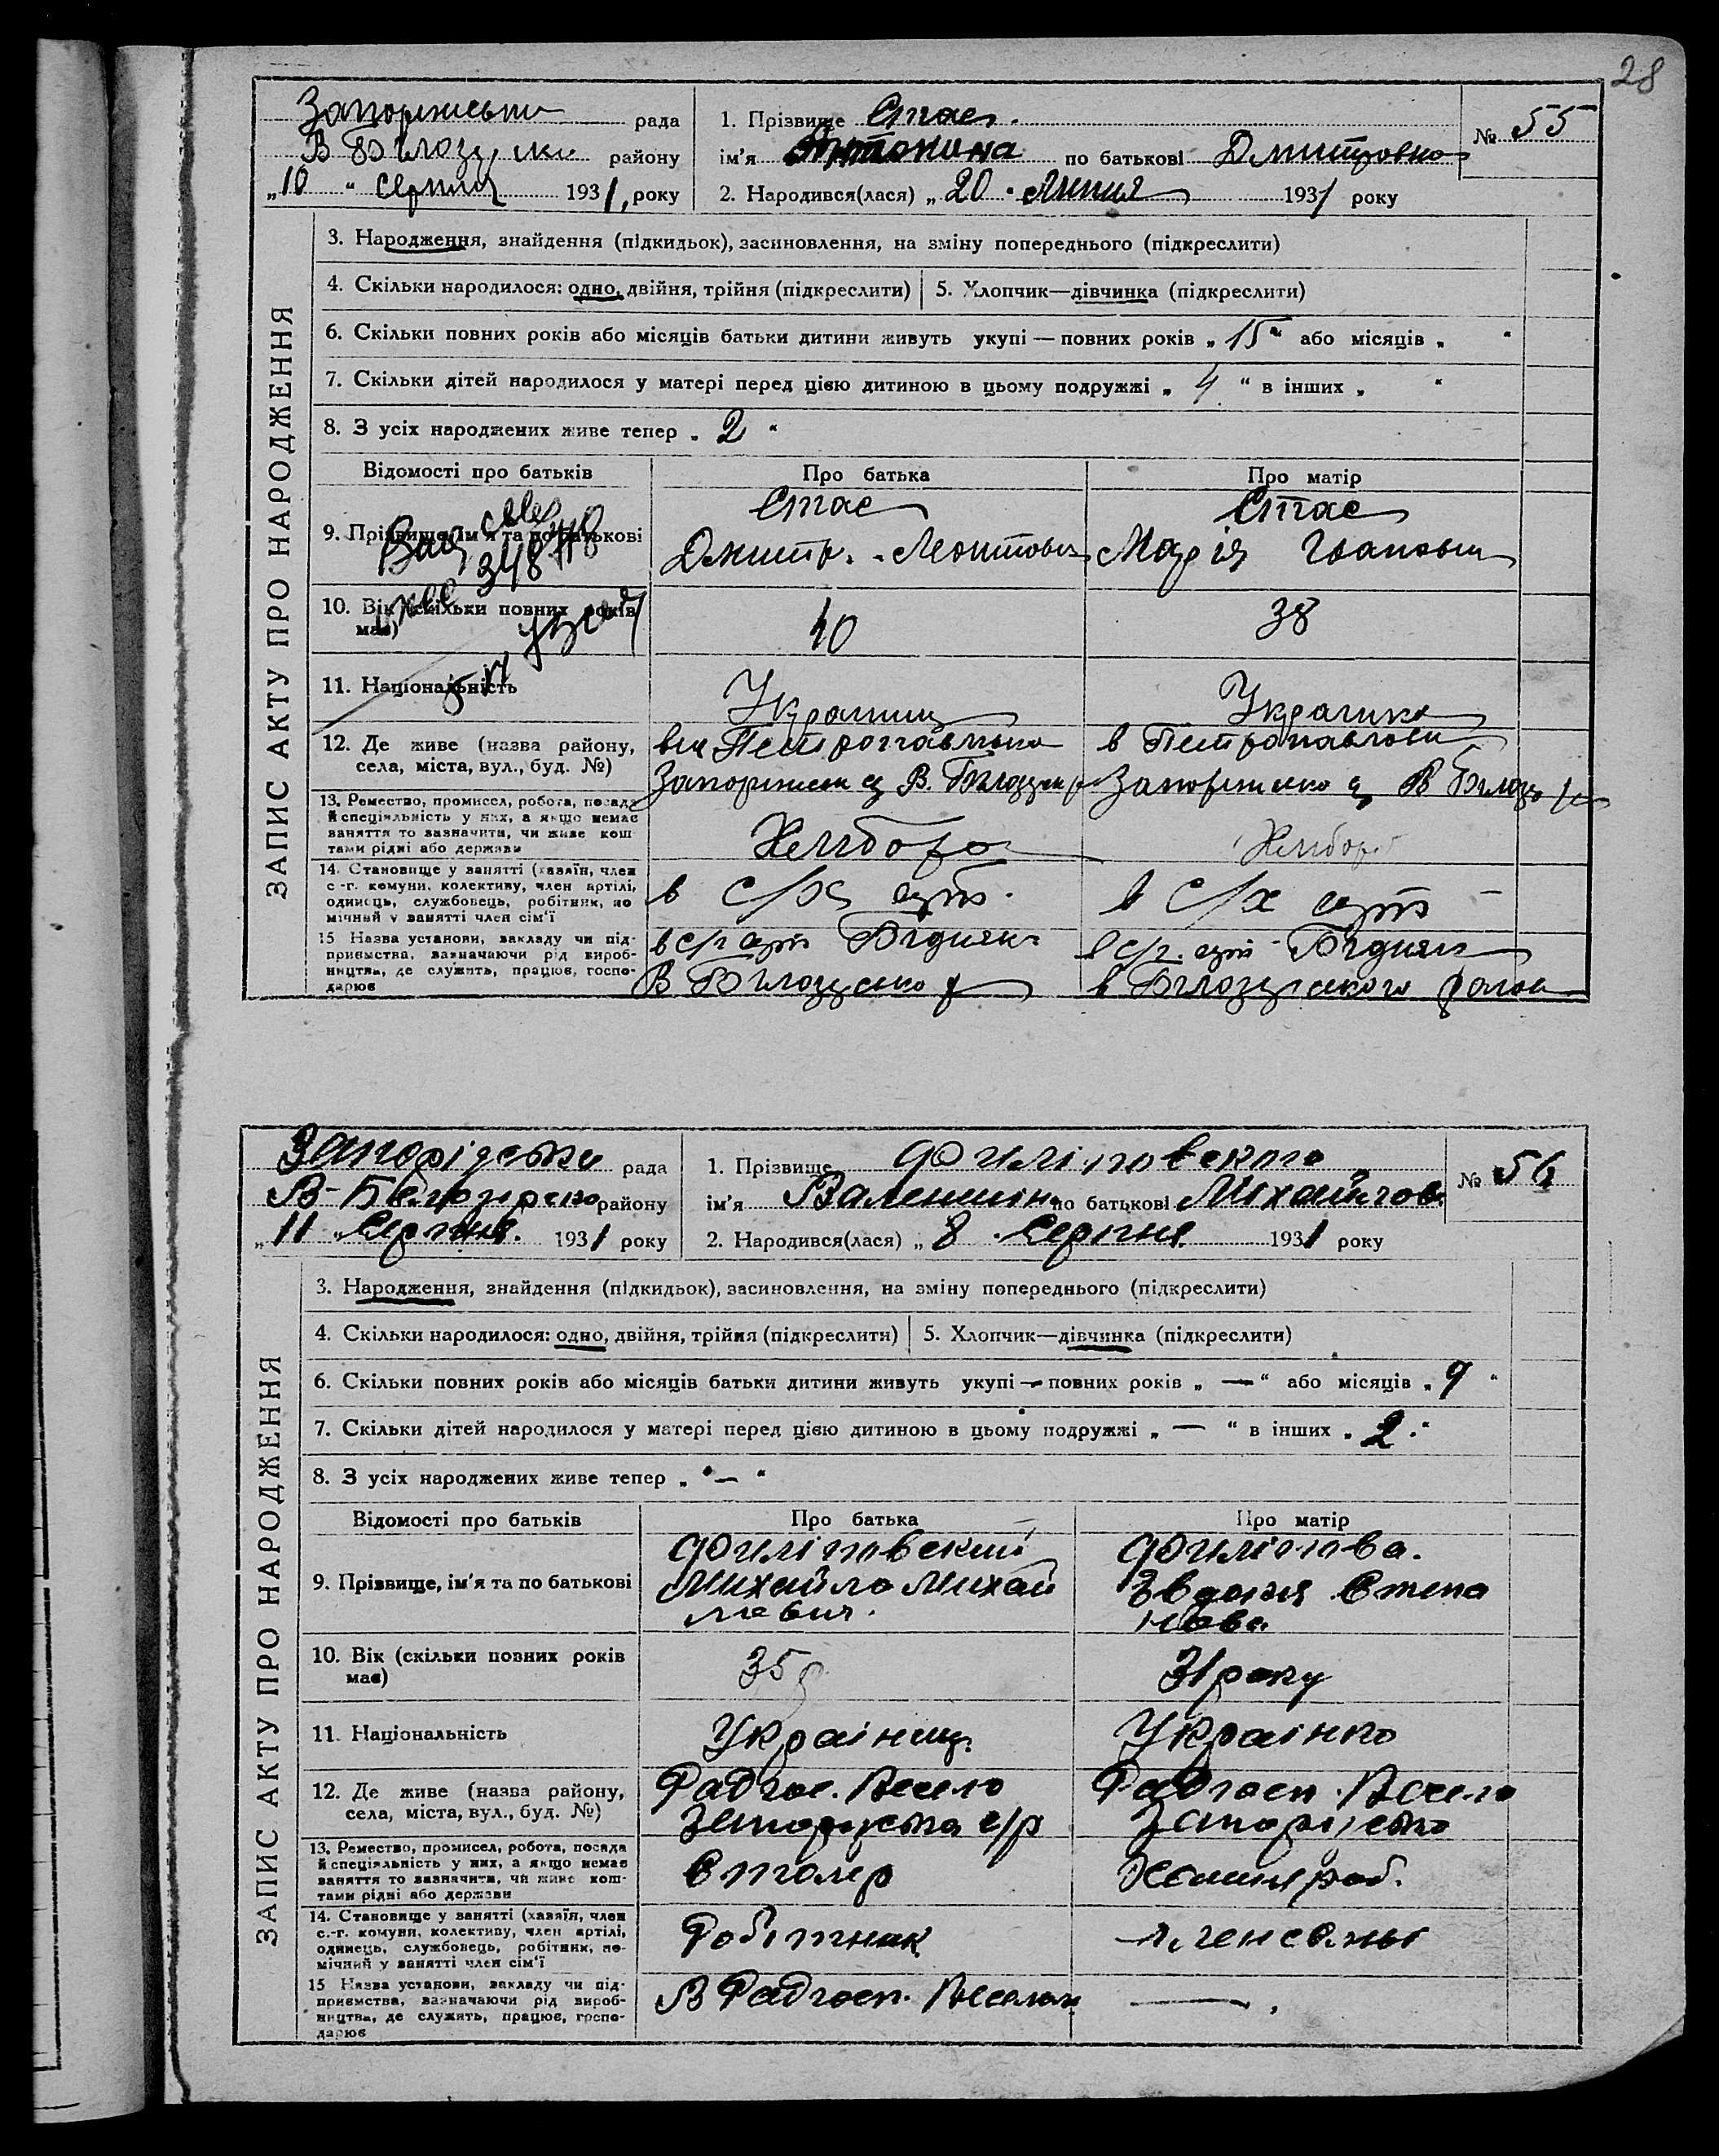 28
ЗАПИС АКТУ ПРО НАРОДЖЕННЯ
рада
В Білозерск району
„10" серпня 1931, року
1. Прізвище Стас
ім'я Антонина по батькові Дмитровна
№ 55
2. Народився(лася) „20" Липня 1931 року
3. Народження, знайдення (підкидьок), засиновлення, на зміну попереднього (підкреслити)
4. Скільки народилося: одно, двійня, трійня (підкреслити) 5. Хлопчик—дівчинка (підкреслити)
6. Скільки повних років або місяців батьки дитини живуть укупі — повних років „15" або місяців „ "
7. Скільки дітей народилося у матері перед цією дитиною в цьому подружжі „ 4 " в інших „ "
8. З усіх народжених живе тепер „ 2 "
Відомості про батьків Про батька Про матір
9. Прізвище, ім'я та по батькові
Стас Стас
Дмитр. Марія
348
10. Вік (скільки повних років має) 40 38
11. Національність Украинец Украинка
12. Де живе (назва району, села, міста, вул., буд. №)
13. Ремество, промисел, робота, посада
й спеціяльність у них, а якщо немає
заняття то зазначити, чи живе кош-
тами рідні або держави
Хлібороб Хлібороб
14. Становище у занятті (хазяїн, член
с.-г. комуни, колективу, член артілі,
одинець, службовець, робітник, по-
мічний у занятті член сім'ї
в с/х арт. в с/х арт
15 Назва установи, закладу чи під-
приємства, зазначаючи рід вироб-
ництва, де служить, працює, госпо-
дарює
в с/г арт Бідняк в с/г. арт Бідняк
ЗАПИС АКТУ ПРО НАРОДЖЕННЯ
рада
району
„11" Серпня. 1931 року
1. Прізвище Филіповского
ім'я Валентін. по батькові Міхайлов.
№ 56
2. Народився(лася) „8" Серпня 1931 року
3. Народження, знайдення (підкидьок), засиновлення, на зміну попереднього (підкреслити)
4. Скільки народилося: одно, двійня, трійня (підкреслити) 5. Хлопчик—дівчинка (підкреслити)
6. Скільки повних років або місяців батьки дитини живуть укупі — повних років „ — " або місяців „ 9 "
7. Скільки дітей народилося у матері перед цією дитиною в цьому подружжі „ — " в інших „ 2 "
8. З усіх народжених живе тепер „ — "
Відомості про батьків Про батька Про матір
9. Прізвище, ім'я та по батькові
Филіповский Филіпова.
Михайло Михай Степа
лович. нова
10. Вік (скільки повних років має) 35 р 31 року
11. Національність Украінец. Украінка
12. Де живе (назва району, села, міста, вул., буд. №)
Радгос. Весело Радгосп. Весело
с/р
13. Ремество, промисел, робота, посада
й спеціяльність у них, а якщо немає
заняття то зазначити, чи живе кош-
тами рідні або держави
Столяр
14. Становище у занятті (хазяїн, член
с.-г. комуни, колективу, член артілі,
одинець, службовець, робітник, по-
мічний у занятті член сім'ї
Робітник член семьі
15 Назва установи, закладу чи під-
приємства, зазначаючи рід вироб-
ництва, де служить, працює, госпо-
дарює
В Радгосп. —